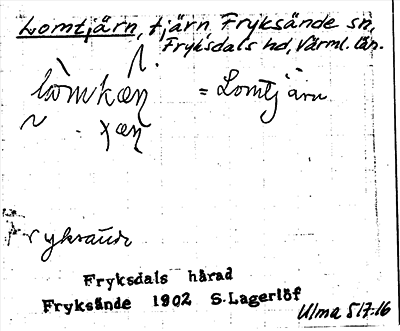 Lomtjärn, tjärn Fryksände sn,
Fryksdals hd, Värml. län.
lòmkæɳ = Lomtjärn
Fryksände
Fryksdals härad
Fryksände 1902 S. Lagerlöf
Ulma 517:16